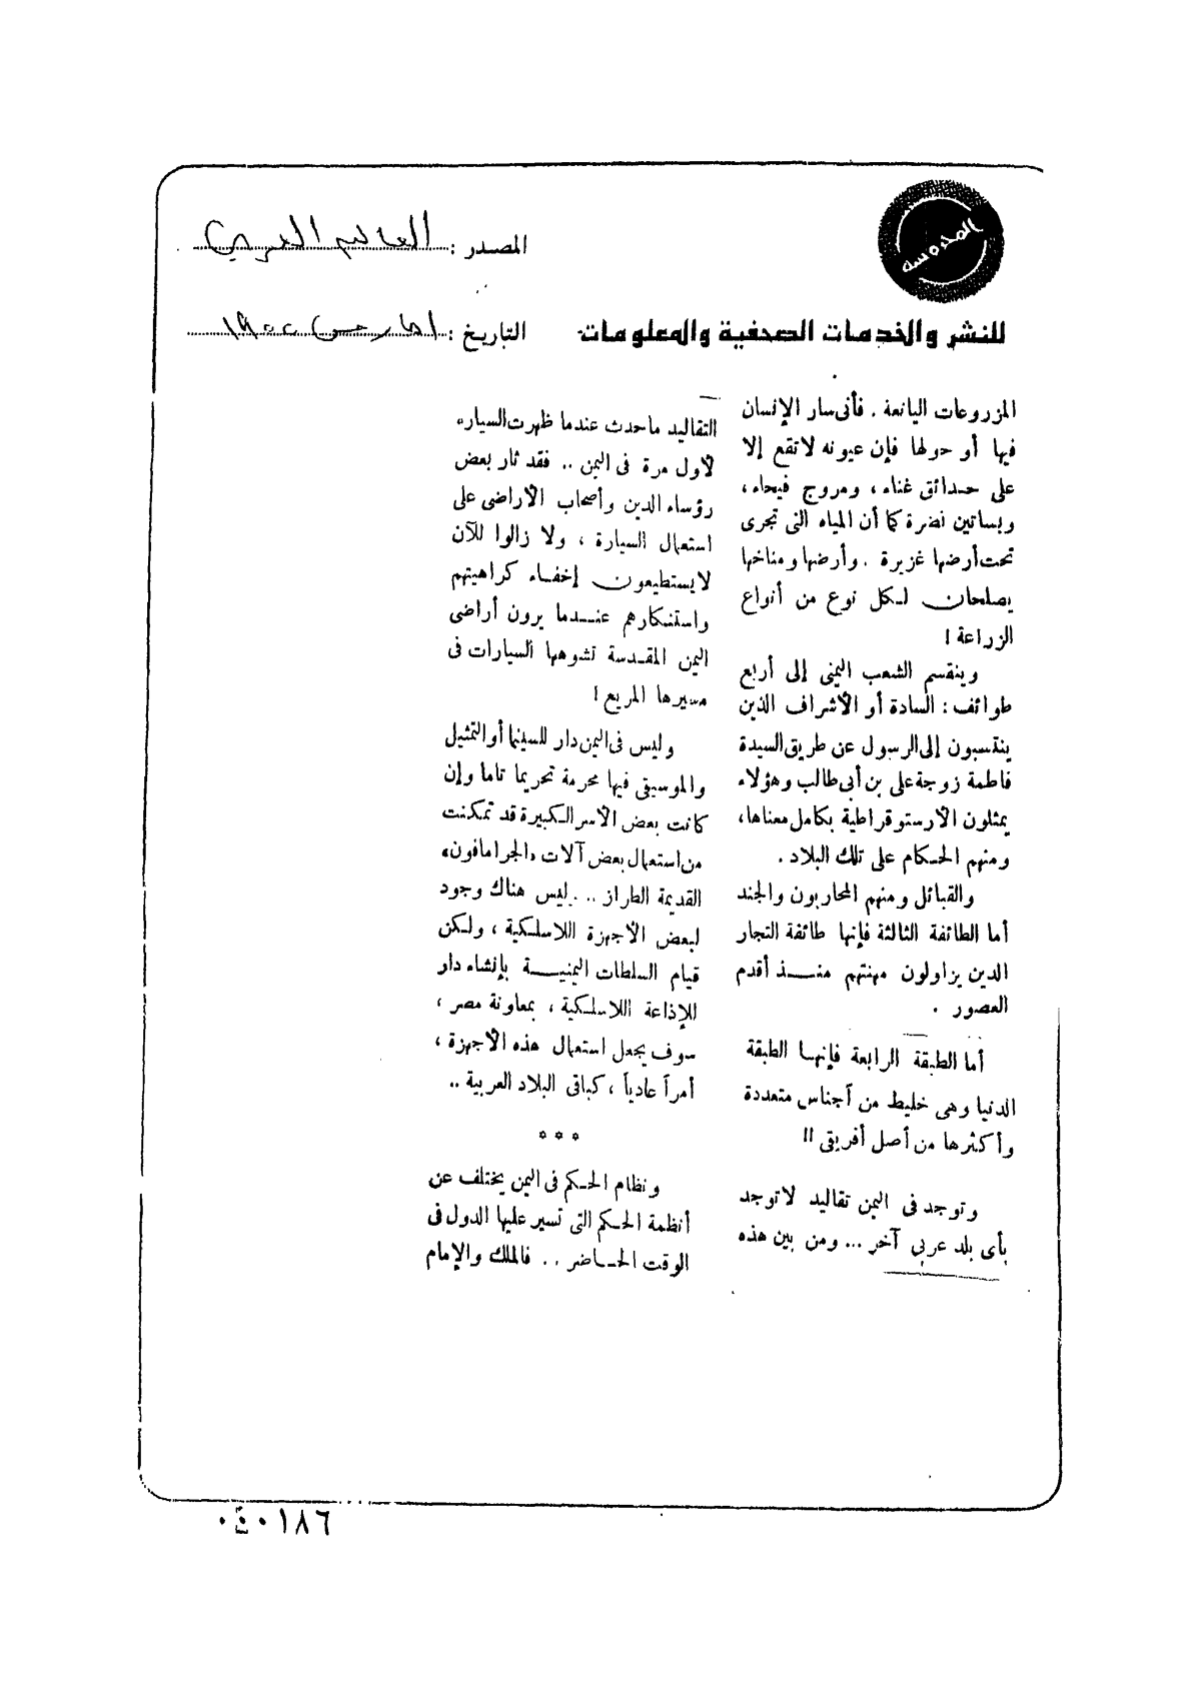 المحروسه
المصدر : العالم العربي
للنشر والخدمات الصحفية والمعلومات
التاريخ : مارس
المزروعات اليانعة . فأنى سار الإنسان
فيها أو حولها فإن عيونه لا تقع إلا
على حدائق غناء ، ومروج فيحاء ،
وبساتين نضرة كما أن المياه التى تجرى
تحت أرضها غزيرة . وأرضها ومناخها
يصلحان لكل نوع من أنواع
الزراعة !
وينقسم الشعب اليمنى إلى أربع
طوائف : السادة أو الأشراف الذين
ينتسبون إلى الرسول عن طريق السيدة
فاطمة زوجة على بن أبى طالب وهؤلاء
يمثلون الارستوقراطية بكامل معناها ،
ومنهم الحكام على تلك البلاد .
والقبائل ومنهم المحاربون والجند
أما الطائفة الثالثة فإنها طائفة التجار
الدين يزاولون مهنتهم منذ أقدم
العصور .
أما الطبقة الرابعة فإنها الطبقة
الدنيا وهى خليط من أجناس متعددة
وأكثرها من أصل أفريقى !!
وتوجد فى اليمن تقاليد لا توجد
بأى بلد عربى آخر ... ومن بين هذه
التقاليد ما حدث عندما ظهرت السياره
لأول مرة فى اليمن .. فقد ثار بعض
رؤساء الدين وأصحاب الاراضى على
استعمال السيارة ، ولا زالوا للآن
لا يستطيعون إخفاء كراهيتهم
واستنكارهم عندما يرون أراضى
اليمن المقدسة تشوهها السيارات فى
مسيرها المريع !
وليس فى اليمن دار للسينما أو التمثيل
والموسيقى فيها محرمة تحريما تاما وإن
كانت بعض الأسر الكبيرة قد تمكنت
من استعمال بعض آلات « الجرامافون »
القديمة الطراز .. . ليس هناك وجود
لبعض الأجهزة اللاسلكية ، ولكن
قيام السلطات اليمنية بإنشاء دار
للإذاعة اللاسلكية ، بمعاونة مصر ،
سوف يجعل استعمال هذه الأجهزة ،
أمراً عادياً ، كباقى البلاد العربية ..
* * *
ونظام الحكم فى اليمن يختلف عن
أنظمة الحكم التى تسير عليها الدول فى
الوقت الحاضر .. فالملك والإمام
٠٤٠١٨٦